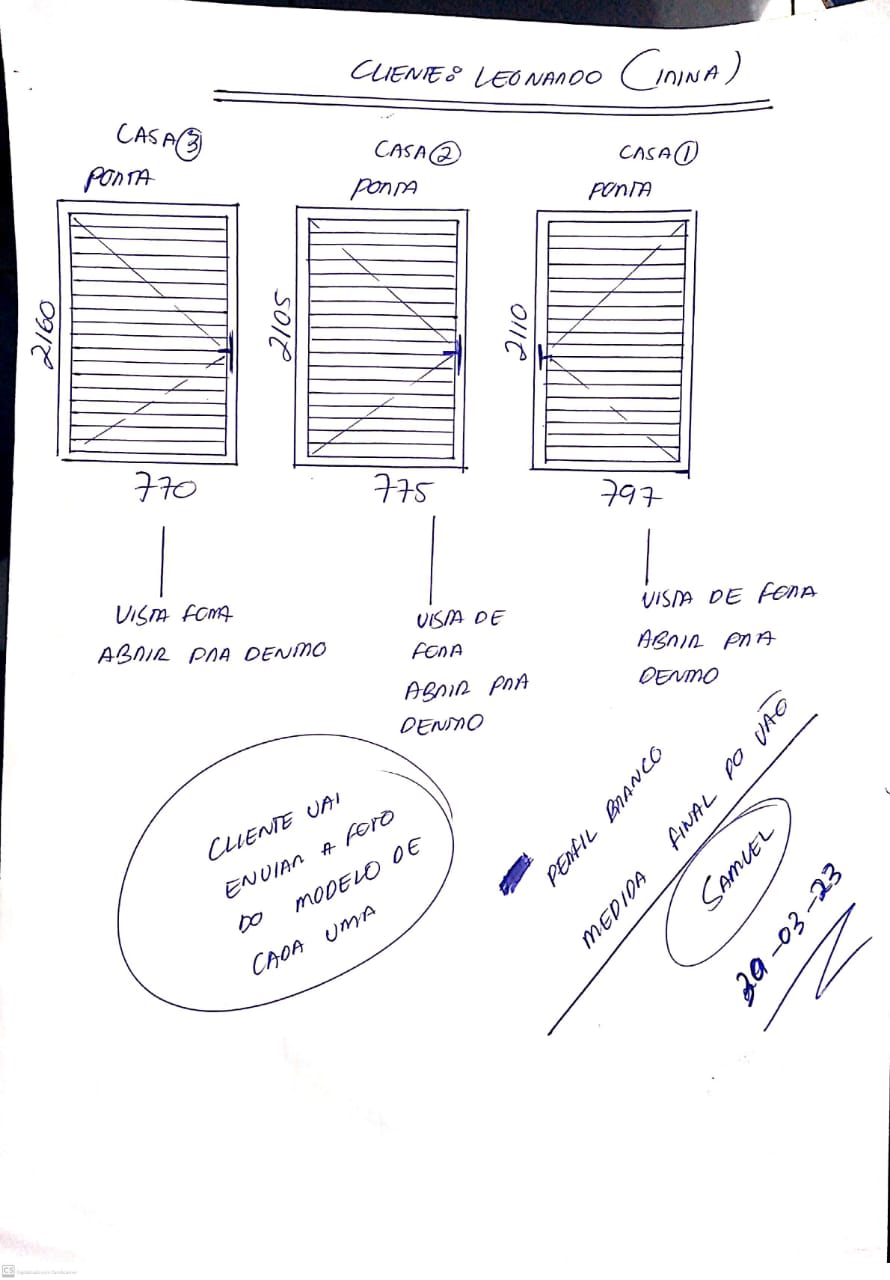 CLIENTE: LEONARDO (IRINA)
CASA 3
PORTA
2160
770
VISTA FORA
ABRIR PRA DENTRO
CASA 2
PORTA
2105
775
VISTA DE
FORA
ABRIR PRA
DENTRO
CASA 1
PORTA
2110
797
VISTA DE FORA
ABRIR PRA
DENTRO
CLIENTE VAI
ENVIAR A FOTO
DO MODELO DE
CADA UMA
PERFIL BRANCO
MEDIDA FINAL DO VÃO
SAMUEL
-03-23
CS